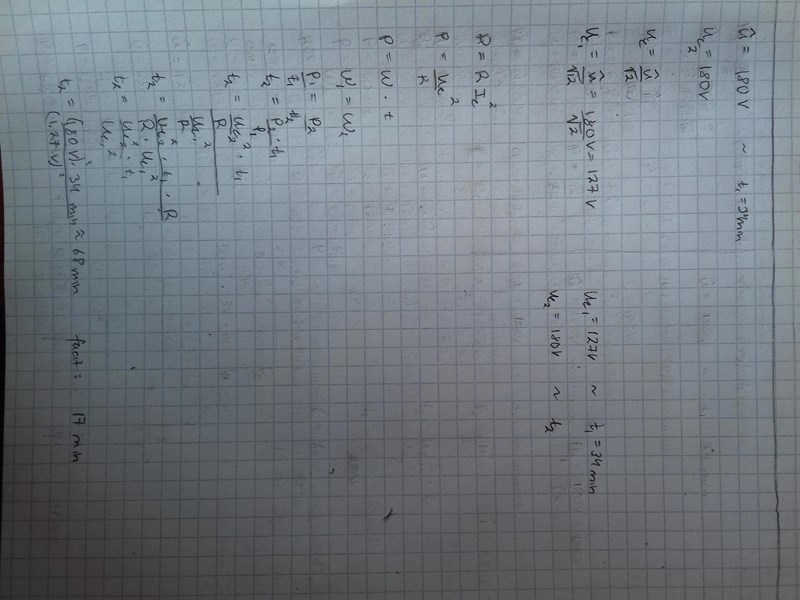 û = 180 V ~ t₁ = 34 min
Ue₂ = 180V
Ue = û/√2
Ue₁ = û/√2 = 180V/√2 = 127V
Ue₁ = 127V ~ t₁ = 34 min
Ue₂ = 180V ~ t₂
P = R Ie²
P = Ue²/R
P = W · t
W₁ = W₂
P₁/t₁ = P₂/t₂
t₂ = P₂/P₁ · t₁
t₂ = Ue₂²/R · t₁ / Ue₁²/R
t₂ = Ue₂² · t₁ · R / R · Ue₁²
t₂ = Ue₂² · t₁ / Ue₁²
t₂ = (180 V)² · 34 min / (127V)² ≈ 68 min facit: 17 min